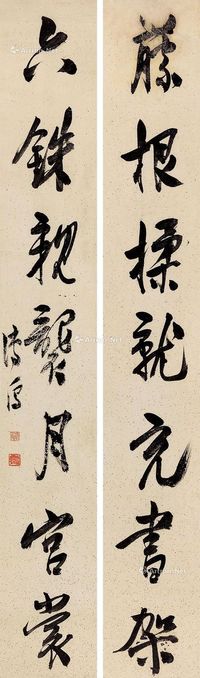 藤根揉就充書架
六銖親襲月宮裳